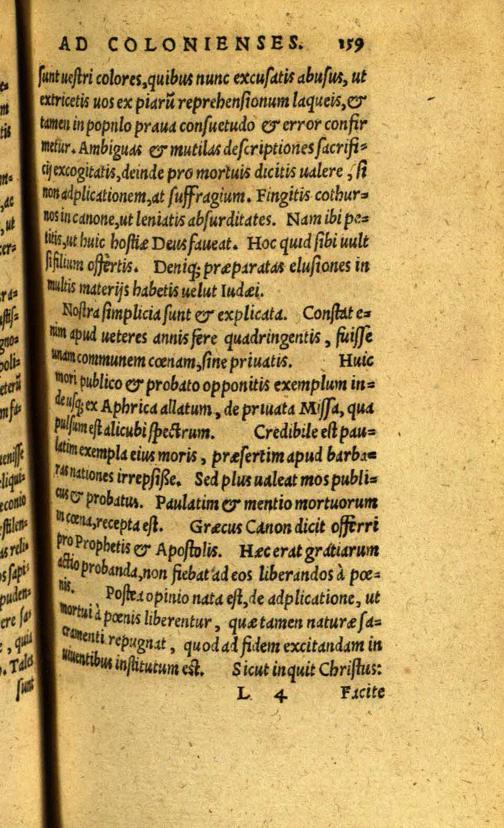 AD COLONIENSES. 159
sunt uestri colores, quibus nunc excusatis abusus, ut
extricetis uos ex piarū reprehensionum laqueis, &
tamen in popnlo praua consuetudo & error confir
metur. Ambiguas & mutilas descriptiones sacrifi=
cij excogitatis, deinde pro mortuis dicitis ualere, si
non adplicationem, at suffragium. Fingitis cothur=
nos in canone, ut leniatis absurditates. Nam ibi pe=
titis, ut huic hostiæ Deus faueat. Hoc quid sibi uult
si filium offertis. Deniq; præparatas elusiones in
multis materijs habetis uelut Iudæi.
Nostra simplicia sunt & explicata. Constat e=
nim apud ueteres annis fere quadringentis, fuisse
unam communem cœnam, sine priuatis. Huic
mori publico & probato opponitis exemplum in=
de usq; ex Aphrica allatum, de priuata Missa, qua
pulsum est alicubi spectrum. Credibile est pau=
latim exempla eius moris, præsertim apud barba=
ras nationes irrepsisse. Sed plus ualeat mos publi=
cus & probatus. Paulatim & mentio mortuorum
in cœna, recepta est. Græcus Canon dicit offerri
pro Prophetis & Apostolis. Hæc erat gratiarum
actio probanda, non fiebat ad eos liberandos à pœ=
nis. Postea opinio nata est, de adplicatione, ut
mortui à pœnis liberentur, quæ tamen naturæ sa=
cramenti repugnat, quod ad fidem excitandam in
uiuentibus institutum est. Sicut inquit Christus:
L 4 Facite